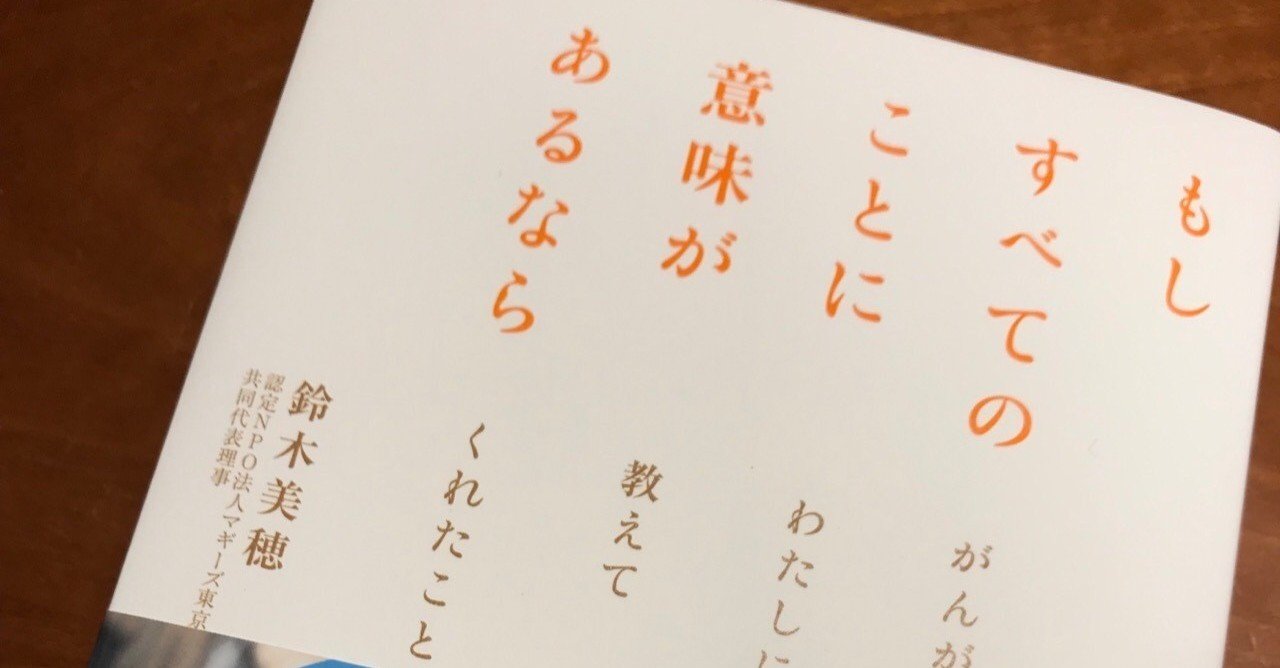 もし
すべての
ことに
意味が
あるなら
がんが
わたしに
教えて
くれたこと
鈴木美穂
認定NPO法人マギーズ東京
共同代表理事